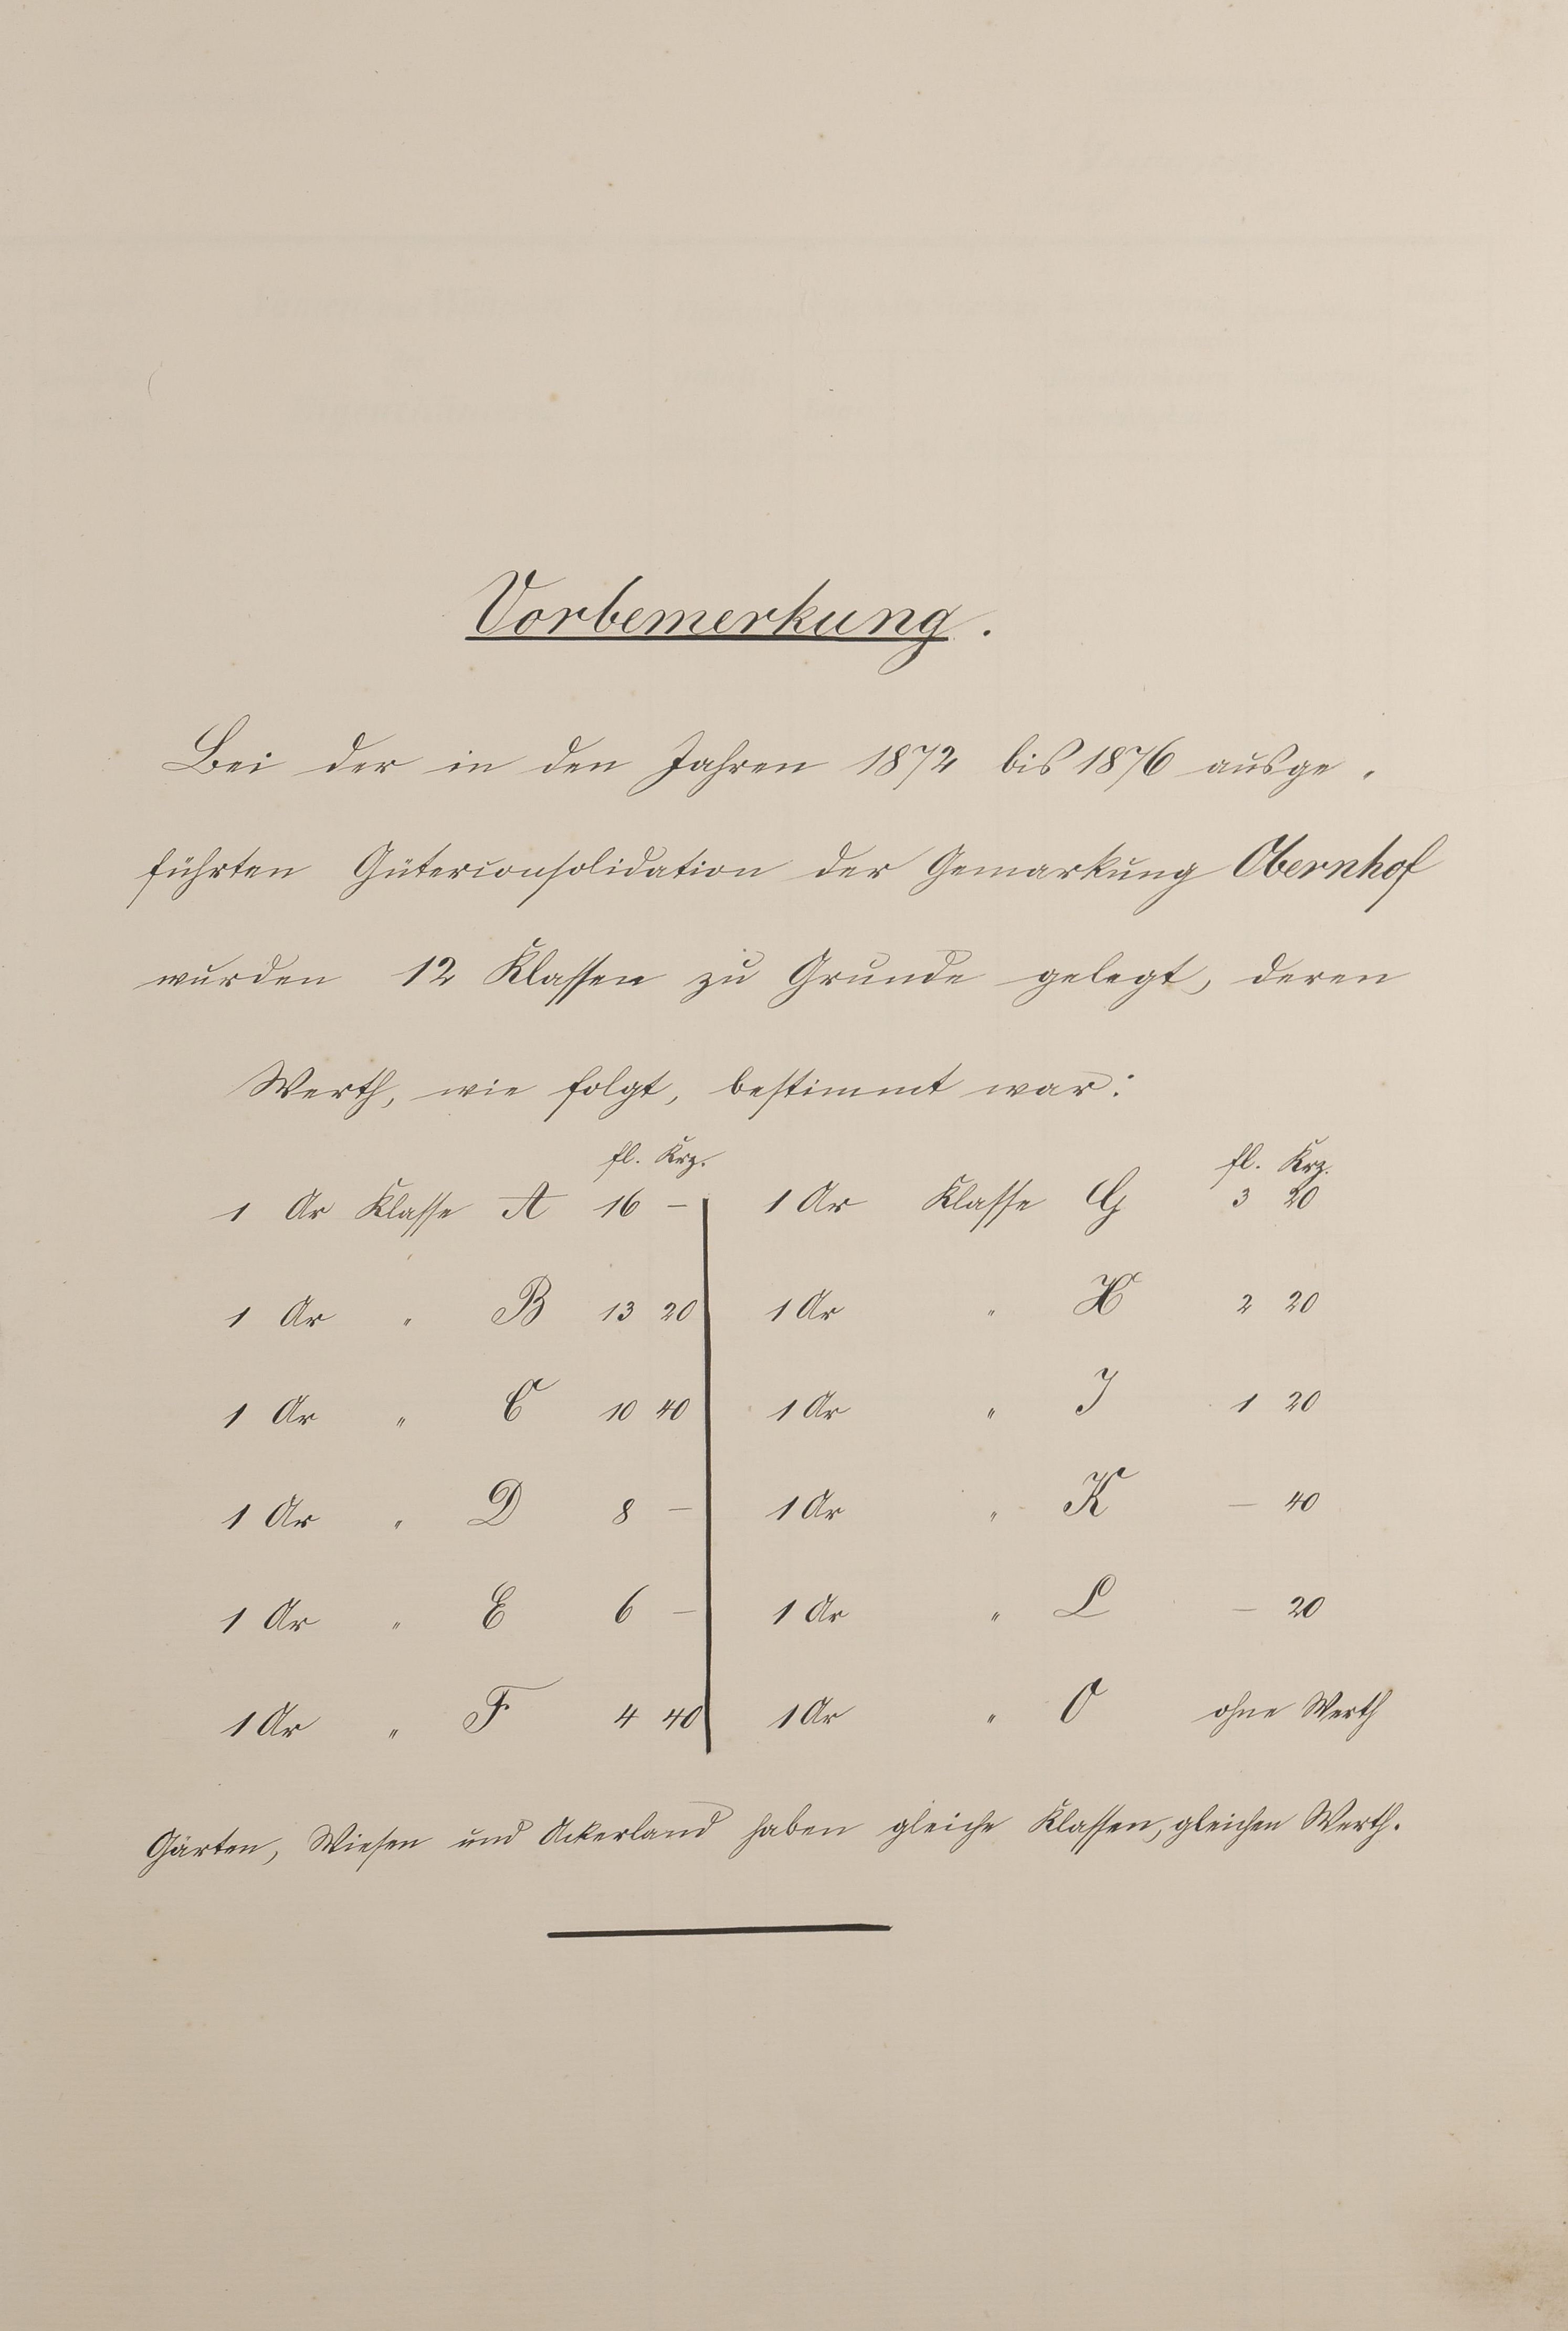 Vorbemerkung.
Bei der in den Jahren 1872 bis 1876 ausge-
führten Güterconsolidation der Gemarkung Obernhof
wurden 12 Klassen zu Grunde gelegt, deren
Werth, wie folgt, bestimmt war:
fl. Krz. fl. Krz.
1 Ar Klasse A 16 — 1 Ar Klasse G 3 20
1 Ar " B 13 20 1 Ar " H 2 20
1 Ar " C 10 40 1 Ar " J 1 20
1 Ar " D 8 — 1 Ar " K — 40
1 Ar " E 6 — 1 Ar " L — 20
1 Ar " F 4 40 1 Ar " O ohne Werth
Gärten, Wiesen und Ackerland haben gleiche Klassen, gleichen Werth.